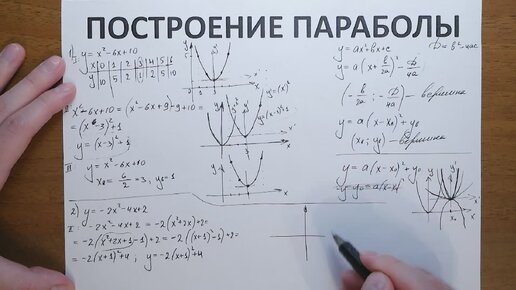 ПОСТРОЕНИЕ ПАРАБОЛЫ
1) y = x² - 6x + 10
I
x 0 1 2 3 4 5 6
y 10 5 2 1 2 5 10
II x² - 6x + 10 = (x² - 6x + 9) - 9 + 10 =
= (x - 3)² + 1
y = (x - 3)² + 1
III y = x² - 6x + 10
x₀ = 6/2 = 3; y₀ = 1
y = (x)²
y = (x - 3)² + 1
y = ax² + bx + c
D = b² - 4ac
y = a(x + b/2a)² - D/4a
(-b/2a; -D/4a) - вершина
y = a(x - x₀)² + y₀
(x₀; y₀) - вершина
y = a(x - x₀)² + y₀
y - y₀ = a(x - x₀)
2) y = -2x² - 4x + 2
I -2x² - 4x + 2 = -2(x² + 2x) + 2 =
= -2(x² + 2x + 1 - 1) + 2 = -2((x + 1)² - 1) + 2 =
= -2(x + 1)² + 4; y = -2(x + 1)² + 4